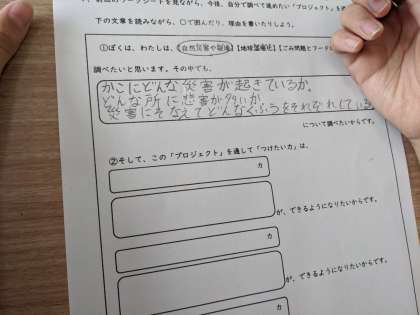 前回のワークシートを見ながら、今後、自分で調べて進めたい「プロジェクト」を
下の文章を読みながら、○で囲んだり、理由を書いたりしよう。
①ぼくは、わたしは、【自然災害や環境】【地球温暖化】【ごみ問題とフード
調べたいと思います。その中でも、
かこにどんな災害が起きているか。
どんな所に災害が多いか。
災害にそなえてどんなくふうをそれぞれしている
について調べたいからです。
②そして、この「プロジェクト」を通して「つけたい力」は、
力
が、できるようになりたいからです。
力
が、できるようになりたいからです。
力